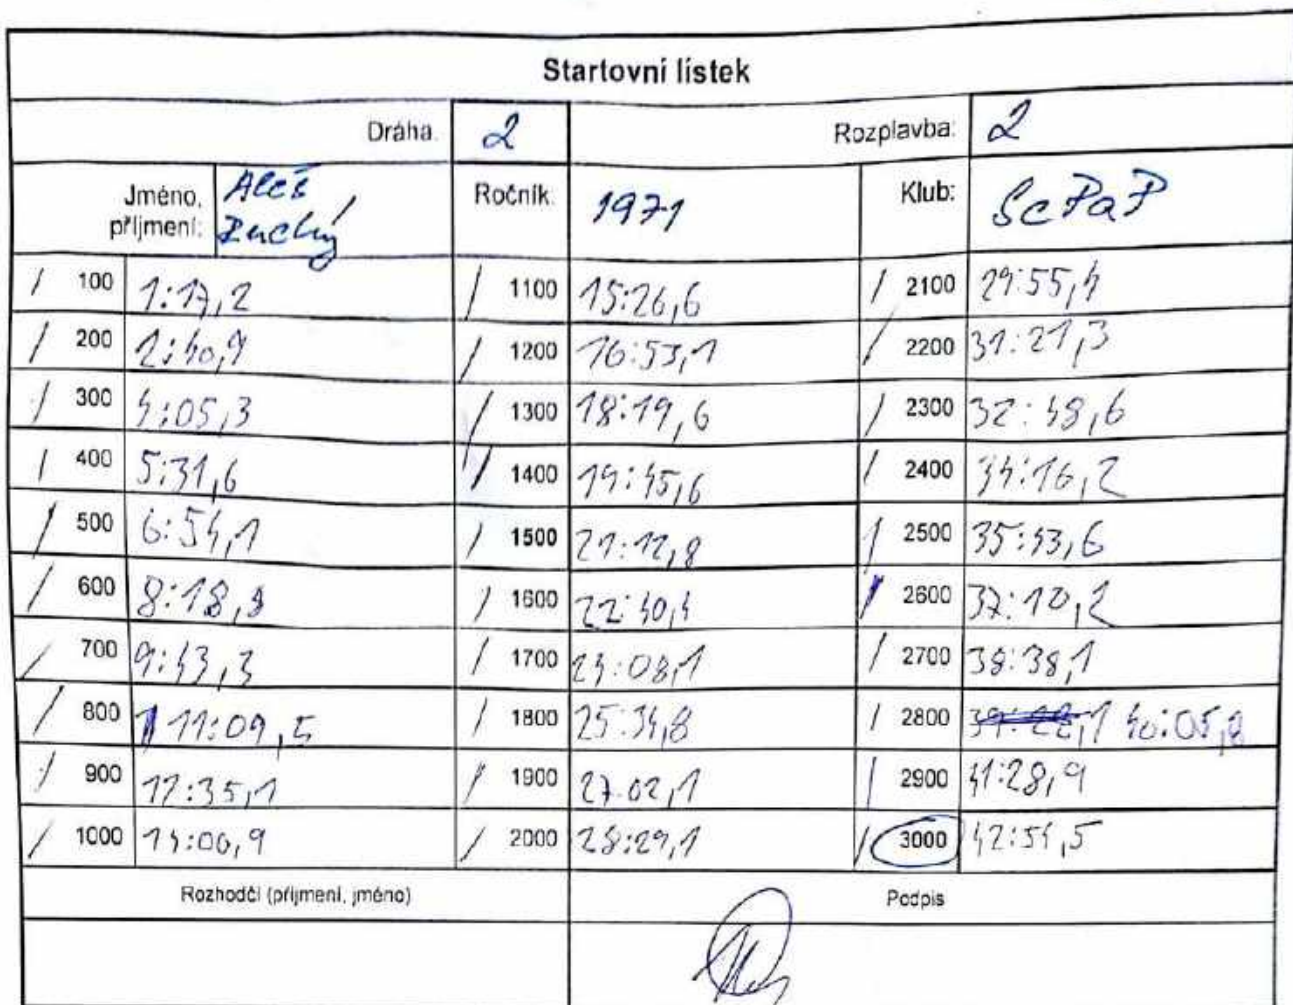 Startovní lístek
Dráha. 2 Rozplavba: 2
Jméno, příjmení: Aleš Ročník. 1971 Klub: ScPaP
/ 100 1:17,2 / 1100 15:26,6 / 2100 29:55,4
/ 200 2:40,9 / 1200 16:53,1 / 2200 31:21,3
/ 300 4:05,3 / 1300 18:19,6 / 2300 32:48,6
/ 400 5:31,6 / 1400 19:45,6 / 2400 34:16,2
/ 500 6:54,1 / 1500 21:12,8 / 2500 35:43,6
/ 600 8:18,9 / 1600 22:40,4 / 2600 37:10,2
/ 700 9:43,3 / 1700 24:08,1 / 2700 38:38,1
/ 800 11:09,5 / 1800 25:34,8 / 2800 39:28,1 40:05,8
/ 900 12:35,1 / 1900 27.02,1 / 2900 41:28,9
/ 1000 14:00,9 / 2000 28:29,1 / 3000 42:54,5
Rozhodčí (příjmení, jméno) Podpis